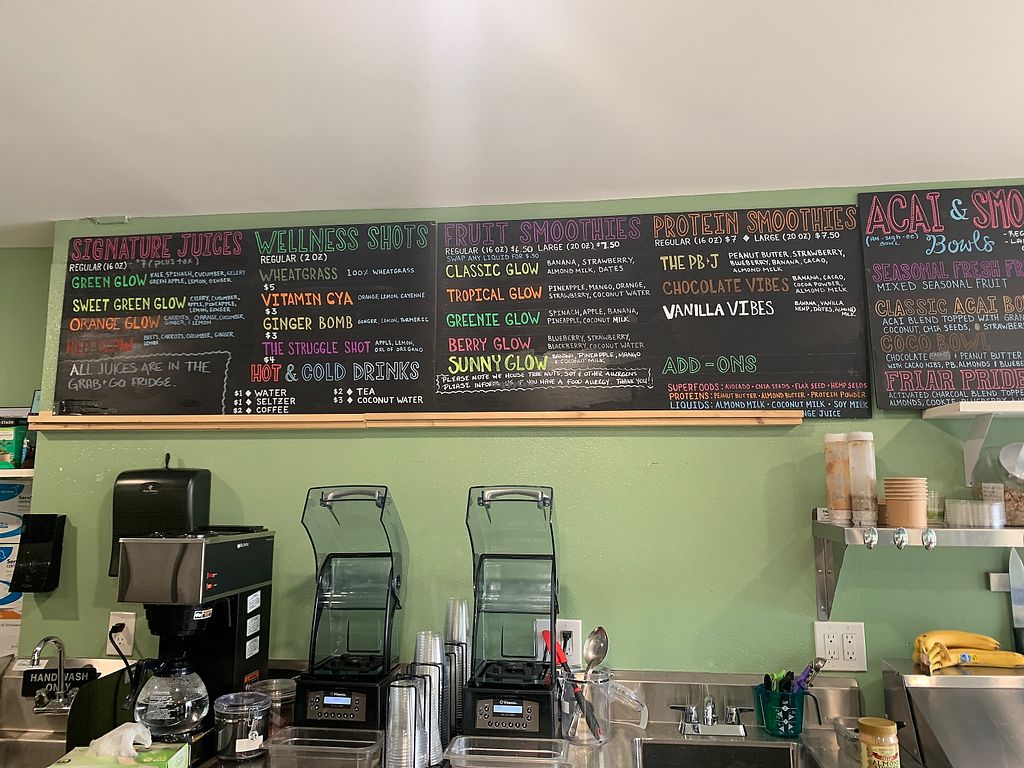 SIGNATURE JUICES
REGULAR (16 OZ)
GREEN GLOW KALE, SPINACH, CUCUMBER, CELERY
GREEN APPLE, LEMON, GINGER
SWEET GREEN GLOW CELERY, CUCUMBER,
APPLE, PINEAPPLE,
LEMON, GINGER
ORANGE GLOW CARROTS, ORANGE, CUCUMBER,
GINGER, & LEMON
BEETS, CARROTS, CUCUMBER, GINGER,
LEMON
ALL JUICES ARE IN THE
GRAB + GO FRIDGE.
WELLNESS SHOTS
REGULAR (2 OZ)
WHEATGRASS 100% WHEATGRASS
$5
VITAMIN CYA ORANGE, LEMON, CAYENNE
$3
GINGER BOMB GINGER, LEMON, TURMERIC
$3
THE STRUGGLE SHOT APPLE, LEMON,
OIL OF OREGANO
$4
HOT & COLD DRINKS
$1 ◆ WATER $2 ◆ TEA
$1 ◆ SELTZER $3 ◆ COCONUT WATER
$2 ◆ COFFEE
FRUIT SMOOTHIES
REGULAR (16 OZ) $6.50 LARGE (20 OZ) $7.50
SWAP ANY LIQUID FOR $.50
CLASSIC GLOW BANANA, STRAWBERRY,
ALMOND MILK, DATES
TROPICAL GLOW PINEAPPLE, MANGO, ORANGE,
STRAWBERRY, COCONUT WATER
GREENIE GLOW SPINACH, APPLE, BANANA,
PINEAPPLE, COCONUT MILK
BERRY GLOW BLUEBERRY, STRAWBERRY,
BLACKBERRY, COCONUT WATER
SUNNY GLOW BANANA, PINEAPPLE, MANGO
& COCONUT MILK
PLEASE NOTE WE HOUSE TREE NUTS, SOY & OTHER ALLERGENS
PLEASE INFORM US IF YOU HAVE A FOOD ALLERGY. THANK YOU!
PROTEIN SMOOTHIES
REGULAR (16 OZ) $7 ◆ LARGE (20 OZ) $7.50
THE PB+J PEANUT BUTTER, STRAWBERRY,
BLUEBERRY, BANANA, CACAO,
ALMOND MILK
CHOCOLATE VIBES BANANA, CACAO,
COCOA POWDER,
ALMOND MILK
VANILLA VIBES BANANA, VANILLA
HEMP, DATES, ALMOND
MILK
ADD-ONS
SUPERFOODS: AVOCADO · CHIA SEEDS · FLAX SEED · HEMP SEEDS
PROTEINS: PEANUT BUTTER · ALMOND BUTTER · PROTEIN POWDER
LIQUIDS: ALMOND MILK · COCONUT MILK · SOY MILK
JUICE
ACAI & SMO
Bowls
SEASONAL FRESH FR
MIXED SEASONAL FRUIT
CLASSIC ACAI BO
ACAI BLEND TOPPED WITH GRAN
COCONUT, CHIA SEEDS, & STRAWBER
COCO BOWL
CHOCOLATE + PEANUT BUTTER
WITH CACAO NIBS, PB, ALMONDS & BLUEB
FRIAR PRIDE
ACTIVATED CHARCOAL BLEND TOPPE
ALMONDS, COOKIE,
HAND WASH
ONLY
BUNN
Vitamix
Vitamix